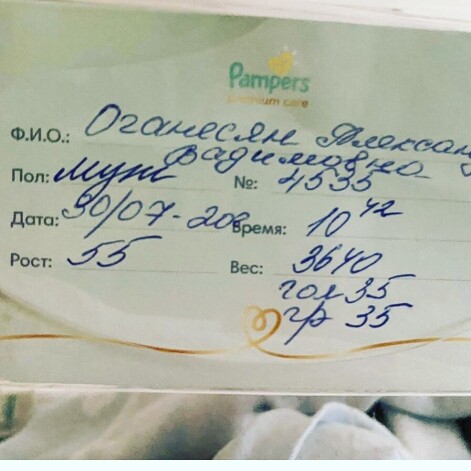 Pampers
premium care
Ф.И.О.: Оганесян Александ
Вадимовна
Пол: муж №: 4535
Дата: 30/07-20 Время: 10 42
Рост: 55 Вес: 3640
гол 35
гр 35